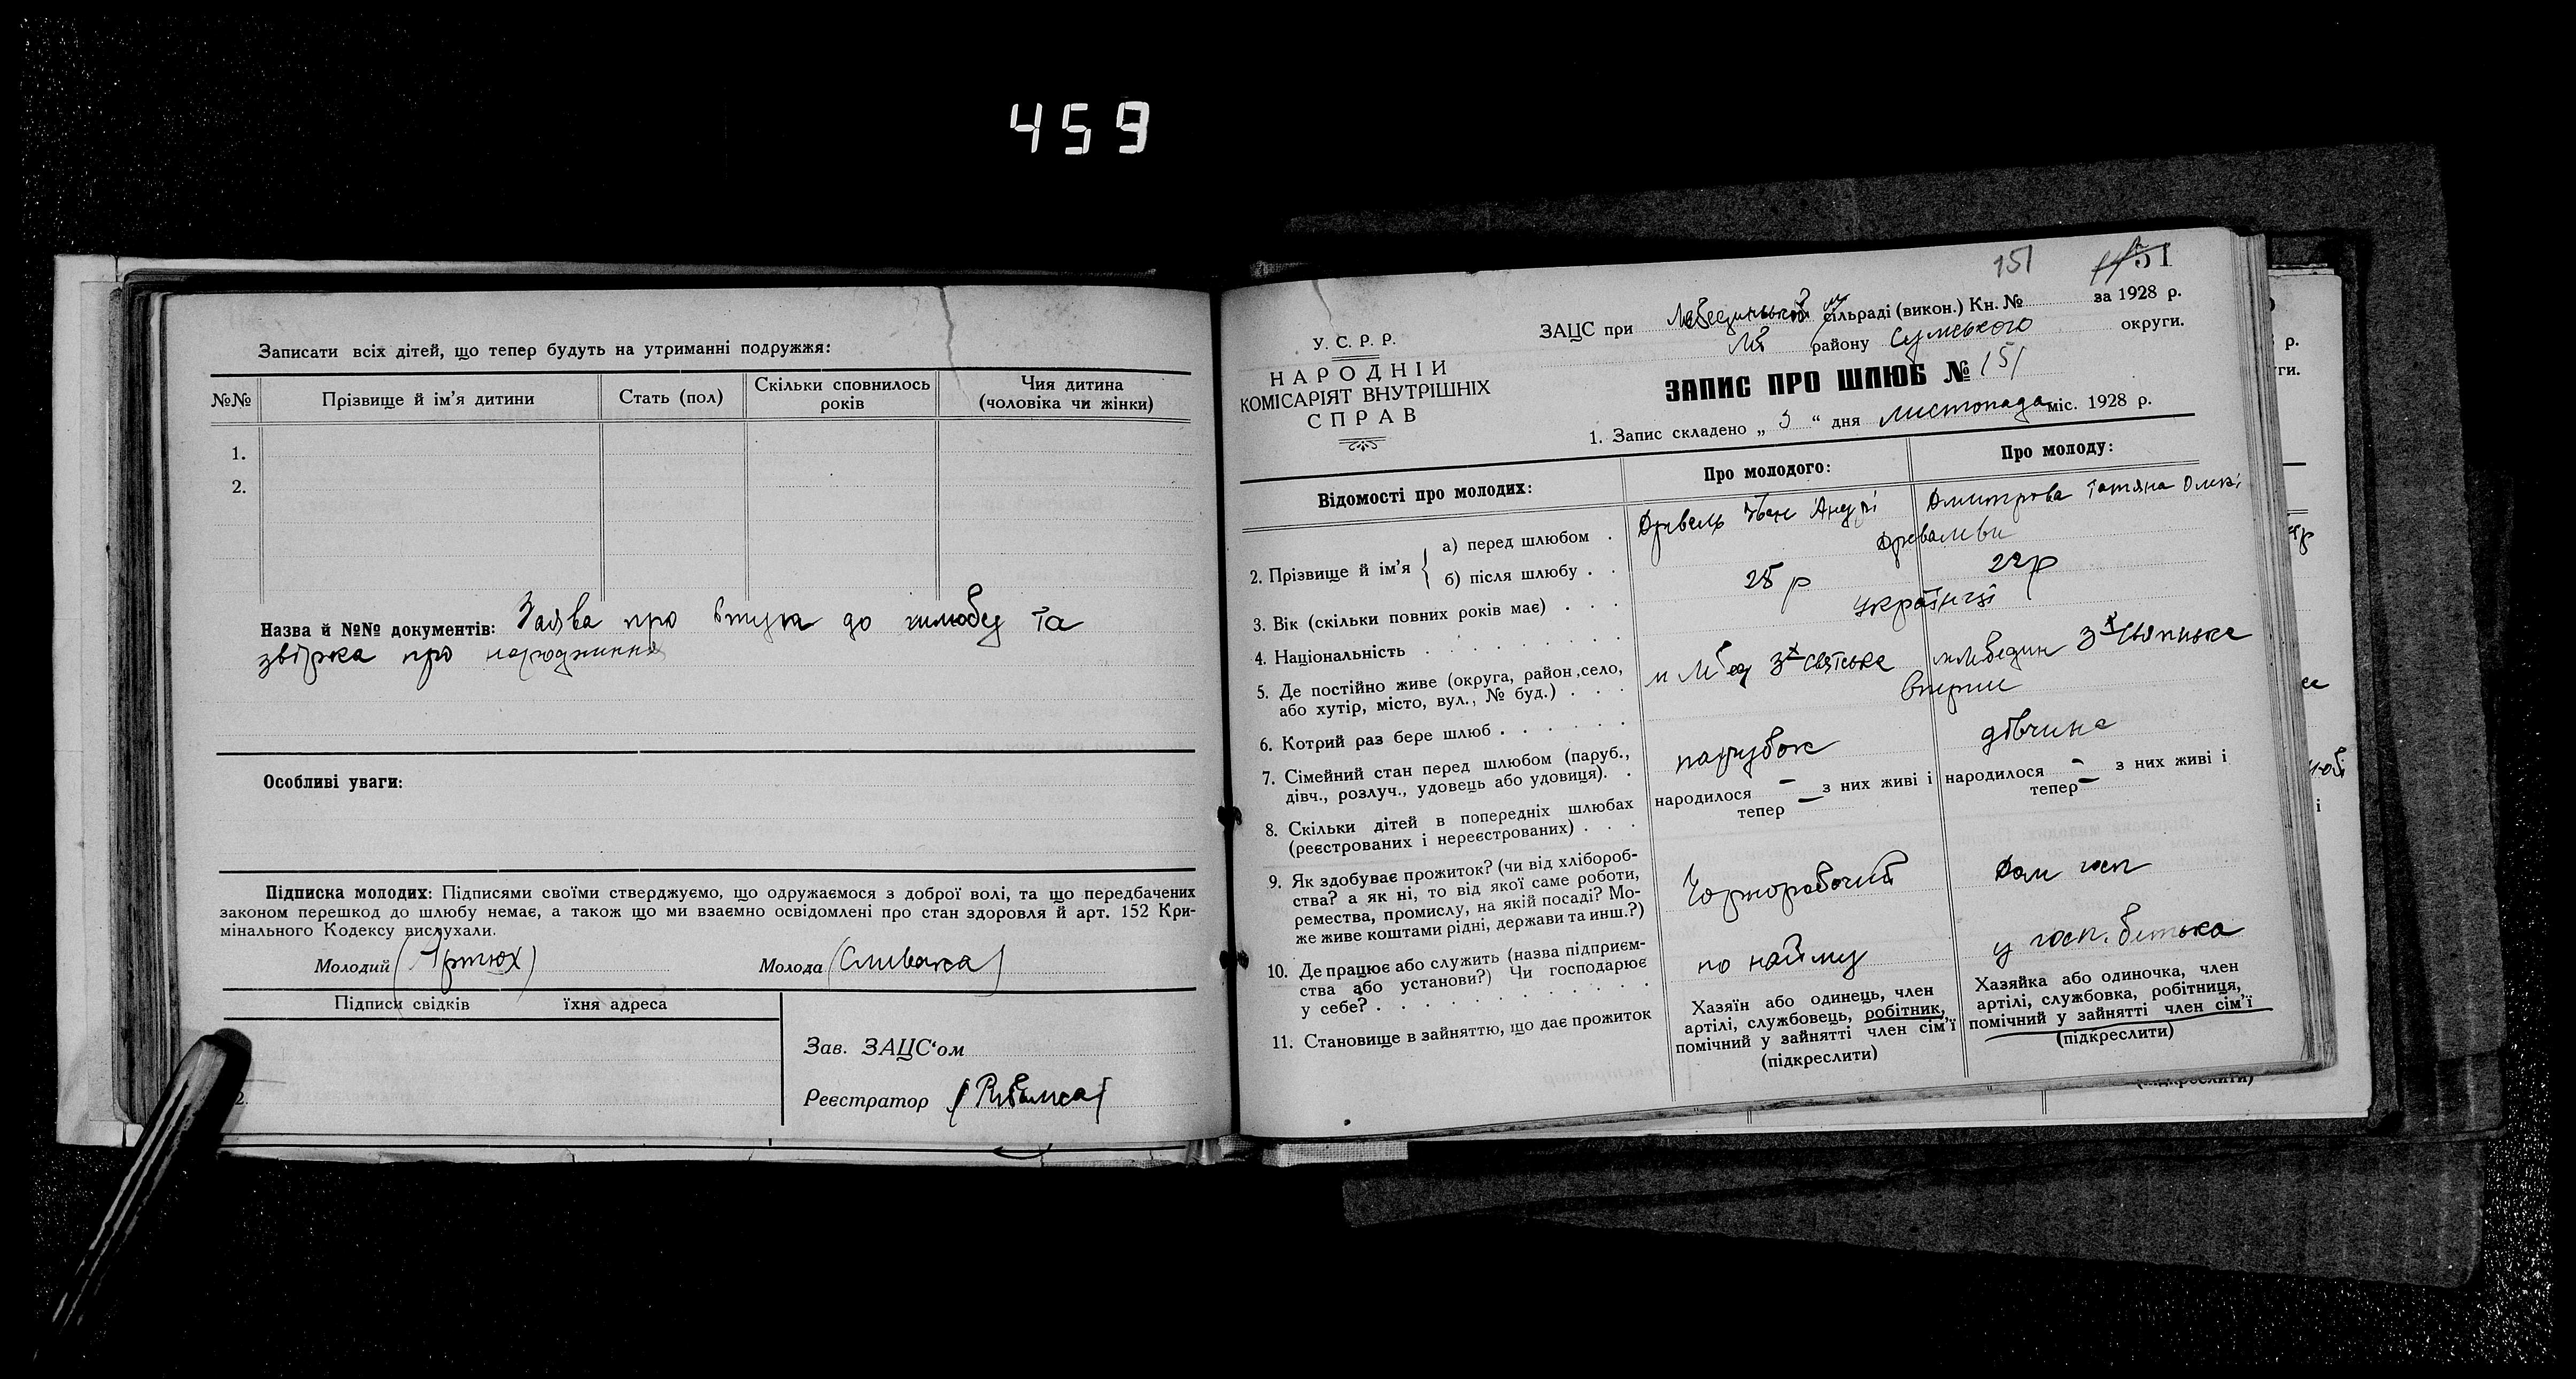 459
Записати всіх дітей, що тепер будуть на утриманні подружжя:
№№ Прізвище й ім'я дитини Стать (пол) Скільки сповнилось років Чия дитина (чоловіка чи жінки)
1.
2.
Назва й №№ документів: Заява про вступ до шлюбу та
звірка про народження
Особливі уваги:
Підписка молодих: Підписями своїми стверджуємо, що одружаємося з доброї волі, та що передбачених
законом перешкод до шлюбу немає, а також що ми взаємно освідомлені про стан здоровля й арт. 152 Кри-
мінального Кодексу вислухали.
Молодий (Артюх) Молода (Сливака)
Підписи свідків їхня адреса
2.
Зав. ЗАЦС'ом
Реєстратор
151 51
У. С. Р. Р.
НАРОДНІЙ
КОМІСАРІЯТ ВНУТРІШНІХ
СПРАВ
ЗАЦС при Лебединській м сільраді (викон.) Кн. № за 1928 р.
Лб району Сумського округи.
ЗАПИС ПРО ШЛЮБ № 151
1. Запис складено „ 3 “ дня листопада міс. 1928 р.
Відомості про молодих: Про молодого: Про молоду:
2. Прізвище й ім'я
а) перед шлюбом . Іван Андрі Дмитрова Татяна Олексі
б) після шлюбу . .
3. Вік (скільки повних років має) . . . 25 р 22 р
4. Національність українці
5. Де постійно живе (округа, район, село,
або хутір, місто, вул., № буд.) . . . м Леб 3х святська м Лебедин 3х Святська
6. Котрий раз бере шлюб . . . вперше
7. Сімейний стан перед шлюбом (паруб.,
дівч., розлуч., удовець або удовиця). . парубок дівчина
8. Скільки дітей в попередніх шлюбах
(реєстрованих і нереєстрованих) . . .
народилося – з них живі і
тепер –
народилося – з них живі і
тепер –
9. Як здобуває прожиток? (чи від хлібороб-
ства? а як ні, то від якої саме роботи,
ремества, промислу, на якій посаді? Мо-
же живе коштами рідні, держави та инш.?)
Чорноробочий
Дом госп
10. Де працює або служить (назва підприєм-
ства або установи?) Чи господарює
у себе? . . .
по найму
у госп. батька
11. Становище в зайняттю, що дає прожиток
Хазяїн або одинець, член
артілі, службовець, робітник,
помічний у зайнятті член сім'ї
(підкреслити)
Хазяйка або одиночка, член
артілі, службовка, робітниця,
помічний у зайнятті член сім'ї
(підкреслити)